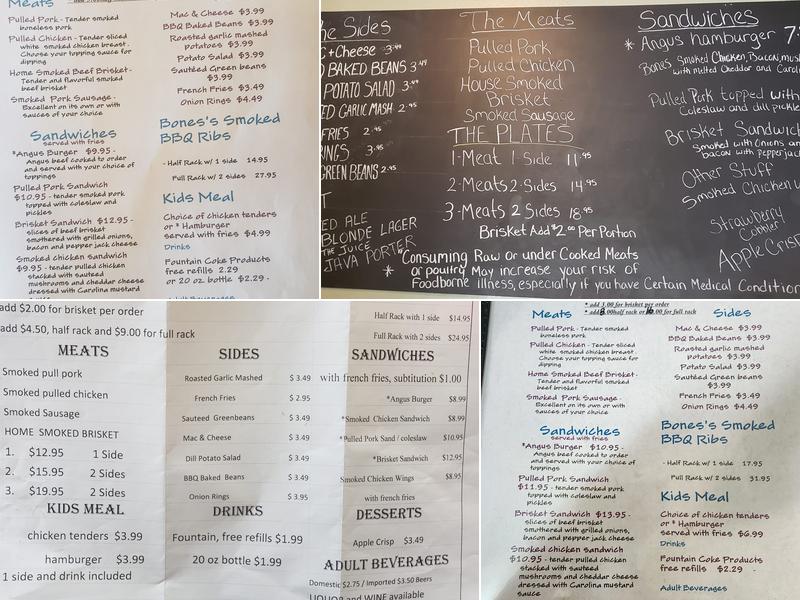 Meats
Pulled Pork - Tender smoked
boneless pork
Pulled Chicken - Tender sliced
white smoked chicken breast.
Choose your topping sauce for
dipping
Home Smoked Beef Brisket-
Tender and flavorful smoked
beef brisket
Smoked Pork Sausage-
Excellent on its own or with
sauces of your choice
Sandwiches
served with fries
*Angus Burger $9.95 -
Angus beef cooked to order
and served with your choice of
toppings
Pulled Pork Sandwich
$10.95 - tender smoked pork
topped with coleslaw and
pickles
Brisket Sandwich $12.95 -
slices of beef brisket
smothered with grilled onions,
bacon and pepper jack cheese
Smoked chicken sandwich
$9.95 - tender pulled chicken
stacked with sauteed
mushrooms and cheddar cheese
dressed with Carolina mustard
Mac & Cheese $3.99
BBQ Baked Beans $3.99
Roasted garlic mashed
potatoes $3.99
Potato Salad $3.99
Sautéed Green beans
$3.99
French Fries $3.49
Onion Rings $4.49
Bones's Smoked
BBQ Ribs
- Half Rack w/ 1 side 14.95
Full Rack w/ 2 sides 27.95
Kids Meal
Choice of chicken tenders
or * Hamburger
served with fries $4.99
Drinks
Fountain Coke Products
free refills 2.29
or 20 oz bottle $2.29 -
he Sides
C+Cheese 3.49
BAKED BEANS 3.49
POTATO SALAD 3.49
ED GARLIC MASH 2.95
FRIES 2.95
RINGS 3.95
GREEN BEANS 2.95
T
ED ALE
BLONDE LAGER
THE JUICE
JAVA PORTER
The Meats
Pulled Pork
Pulled Chicken
House Smoked
Brisket
Smoked Sausage
THE PLATES
1-Meat 1-Side 11.95
2-Meats 2-Sides 14.95
3-Meats 2 Sides 18.95
Brisket Add $2.00 Per Portion
*Consuming Raw or under Cooked Meats
or poultry May increase your risk of
Foodborne illness, especially if you have Certain Medical Condition
Sandwiches
* Angus hamburger 7.
Bones Smoked Chicken, Bacon, mush
with melted Cheddar and Caroli
Pulled Pork topped with
Coleslaw and dill pickle
Brisket Sandwich
Smoked with Onions an
bacon with pepperjack
Other Stuff
Smoked Chicken W
Strawberry
Cobbler
Apple Crisp
add $2.00 for brisket per order
add $4.50, half rack and $9.00 for full rack
MEATS
Smoked pull pork
Smoked pulled chicken
Smoked Sausage
HOME SMOKED BRISKET
1. $12.95 1 Side
2. $15.95 2 Sides
3. $19.95 2 Sides
KIDS MEAL
chicken tenders $3.99
hamburger $3.99
1 side and drink included
SIDES
Roasted Garlic Mashed $ 3.49
French Fries $ 2.95
Sauteed Greenbeans $ 3.49
Mac & Cheese $ 3.49
Dill Potato Salad $ 3.49
BBQ Baked Beans $ 3.49
Onion Rings $ 3.95
DRINKS
Fountain, free refills $1.99
20 oz bottle $1.99
Half Rack with 1 side $14.95
Full Rack with 2 sides $24.95
SANDWICHES
with french fries, subtitution $1.00
*Angus Burger $8.99
*Smoked Chicken Sandwich $8.99
*Pulled Pork Sand / coleslaw $10.95
*Brisket Sandwich $12.95
Smoked Chicken Wings $8.95
with french fries
DESSERTS
Apple Crisp $3.49
ADULT BEVERAGES
Domestic $2.75 / Imported $3.50 Beers
LIQUOR and WINE available
* add 3.00 for brisket per order
Meats
Pulled Pork - Tender smoked
boneless pork
Pulled Chicken - Tender sliced
white smoked chicken breast.
Choose your topping sauce for
dipping
Home Smoked Beef Brisket-
Tender and flavorful smoked
beef brisket
Smoked Pork Sausage-
Excellent on its own or with
sauces of your choice
Sandwiches
served with fries
*Angus Burger $10.95 -
Angus beef cooked to order
and served with your choice of
toppings
Pulled Pork Sandwich
$11.95 - tender smoked pork
topped with coleslaw and
pickles
Brisket Sandwich $13.95 -
slices of beef brisket
smothered with grilled onions,
bacon and pepper jack cheese
Smoked chicken sandwich
$10.95 - tender pulled chicken
stacked with sauteed
mushrooms and cheddar cheese
dressed with Carolina mustard
sauce
Sides
Mac & Cheese $3.99
BBQ Baked Beans $3.99
Roasted garlic mashed
potatoes $3.99
Potato Salad $3.99
Sautéed Green beans
$3.99
French Fries $3.49
Onion Rings $4.49
Bones's Smoked
BBQ Ribs
- Half Rack w/ 1 side 17.95
Full Rack w/ 2 sides 31.95
Kids Meal
Choice of chicken tenders
or * Hamburger
served with fries $6.99
Drinks
Fountain Coke Products
free refills $2.29 -
Adult Beverages